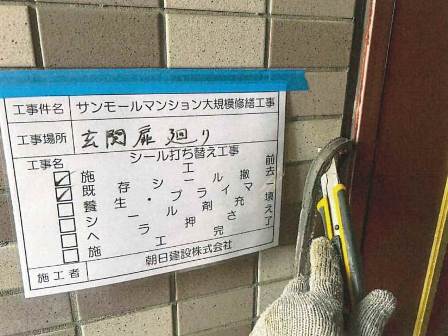 工事件名 サンモールマンション大規模修繕工事
工事場所 玄関扉廻り
工事名 シール打ち替え工事
施工前
既存シール撤去
養生・プライマー
シール剤充填
ヘラ押さえ
施工完了
施工者 朝日建設株式会社